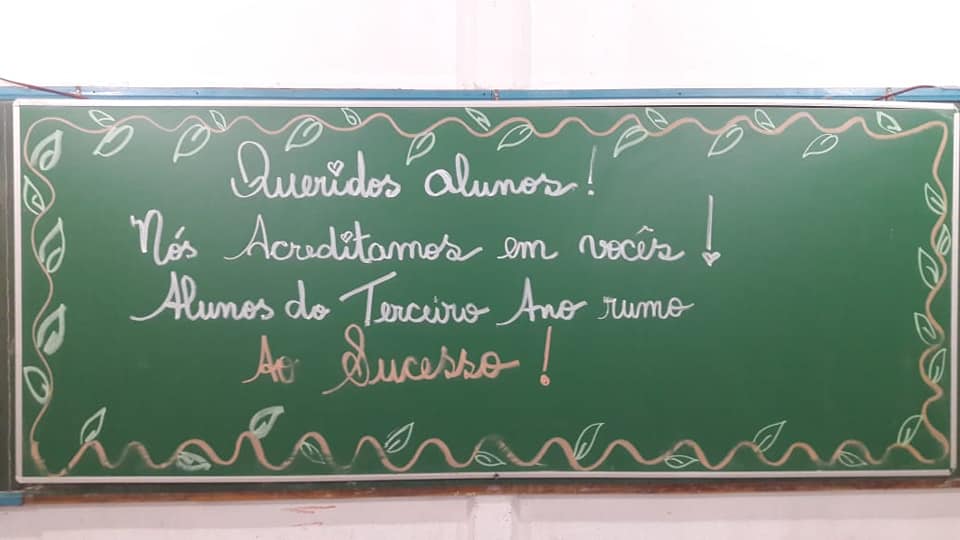 Queridos alunos!
Nós Acreditamos em vocês!
Alunos do Terceiro Ano rumo
Ao Sucesso!